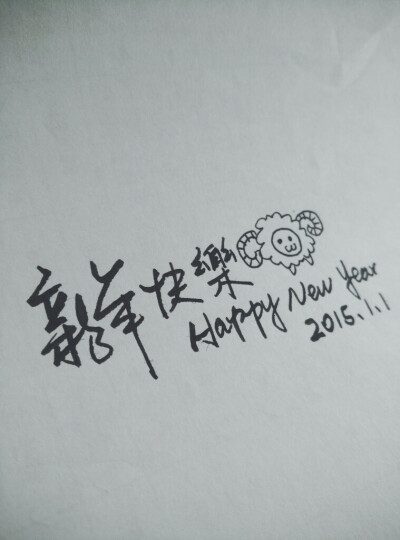 新年快樂
Happy New Year
2015.1.1